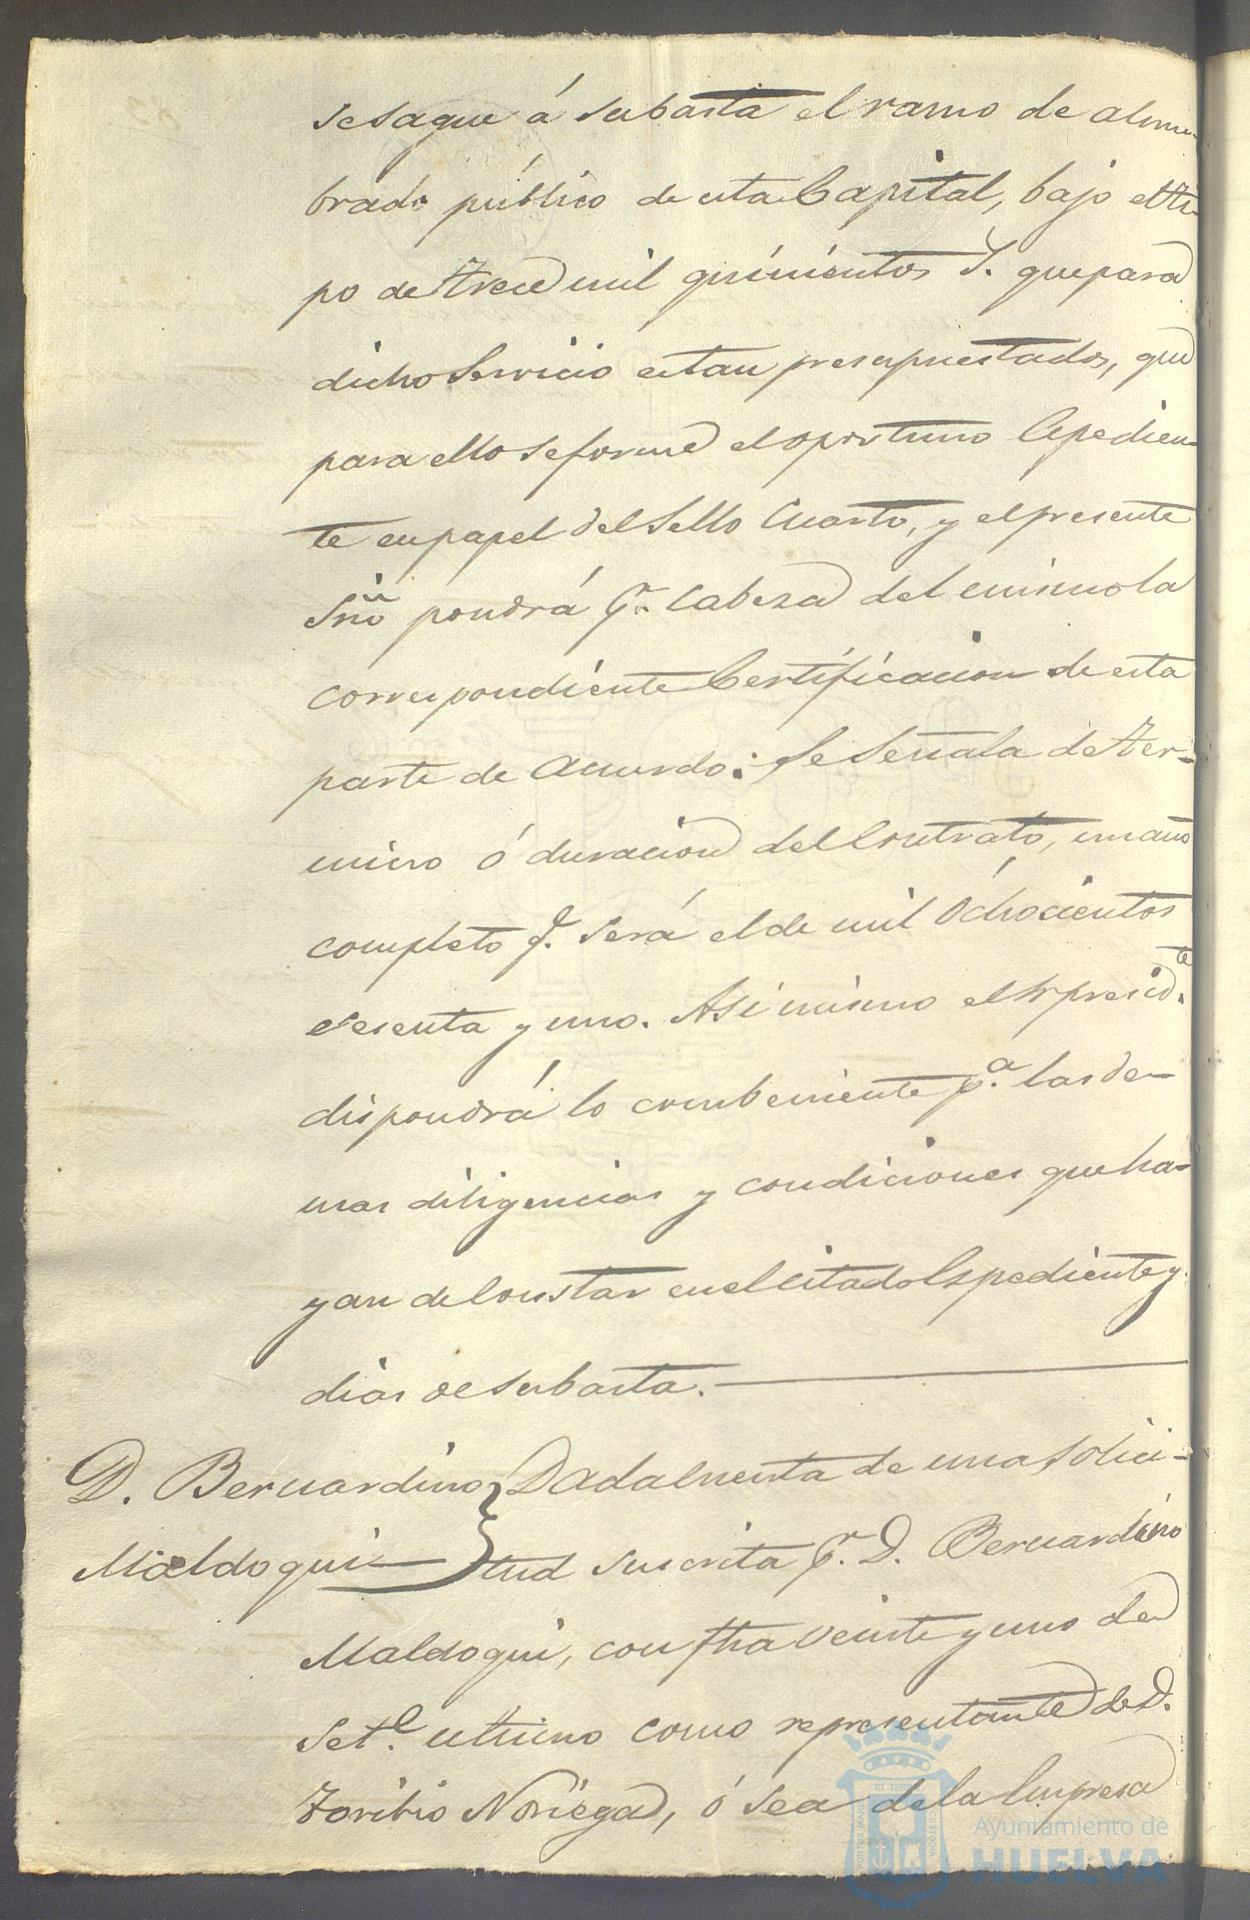 se saque á subasta el ramo de alum-
brado público de esta Capital, bajo el ti-
po de trece mil quinientos r. que para
dicho Servicio estan presupuestados, que
para ello se forme el oportuno Cspedien-
te en papel del Sello Cuarto, y el presente
Srio pondrá pr. Cabeza del mismo la
correspondiente Certificacion de esta
parte de Acuerdo: Se Señala de ter-
mino ó duracion del Contrato, un año
completo q. será el de mil Ochocientos
sesenta y uno. Asi mismo el Sr presid.te
dispondrá lo combeniente p.a las de-
mas diligencias y condiciones que ha-
yan de Constar en el Citado Espediente y
dias de Subasta.
D. Bernardino
Maldoqui
Dada Cuenta de una Solici-
tud suscrita pr. D. Bernardino
Maldoqui, con fha Veinte y uno de
Set.e ultimo como representante de D.
Toribio Noriega, ó sea de la Empresa
Ayuntamiento de
HUELVA